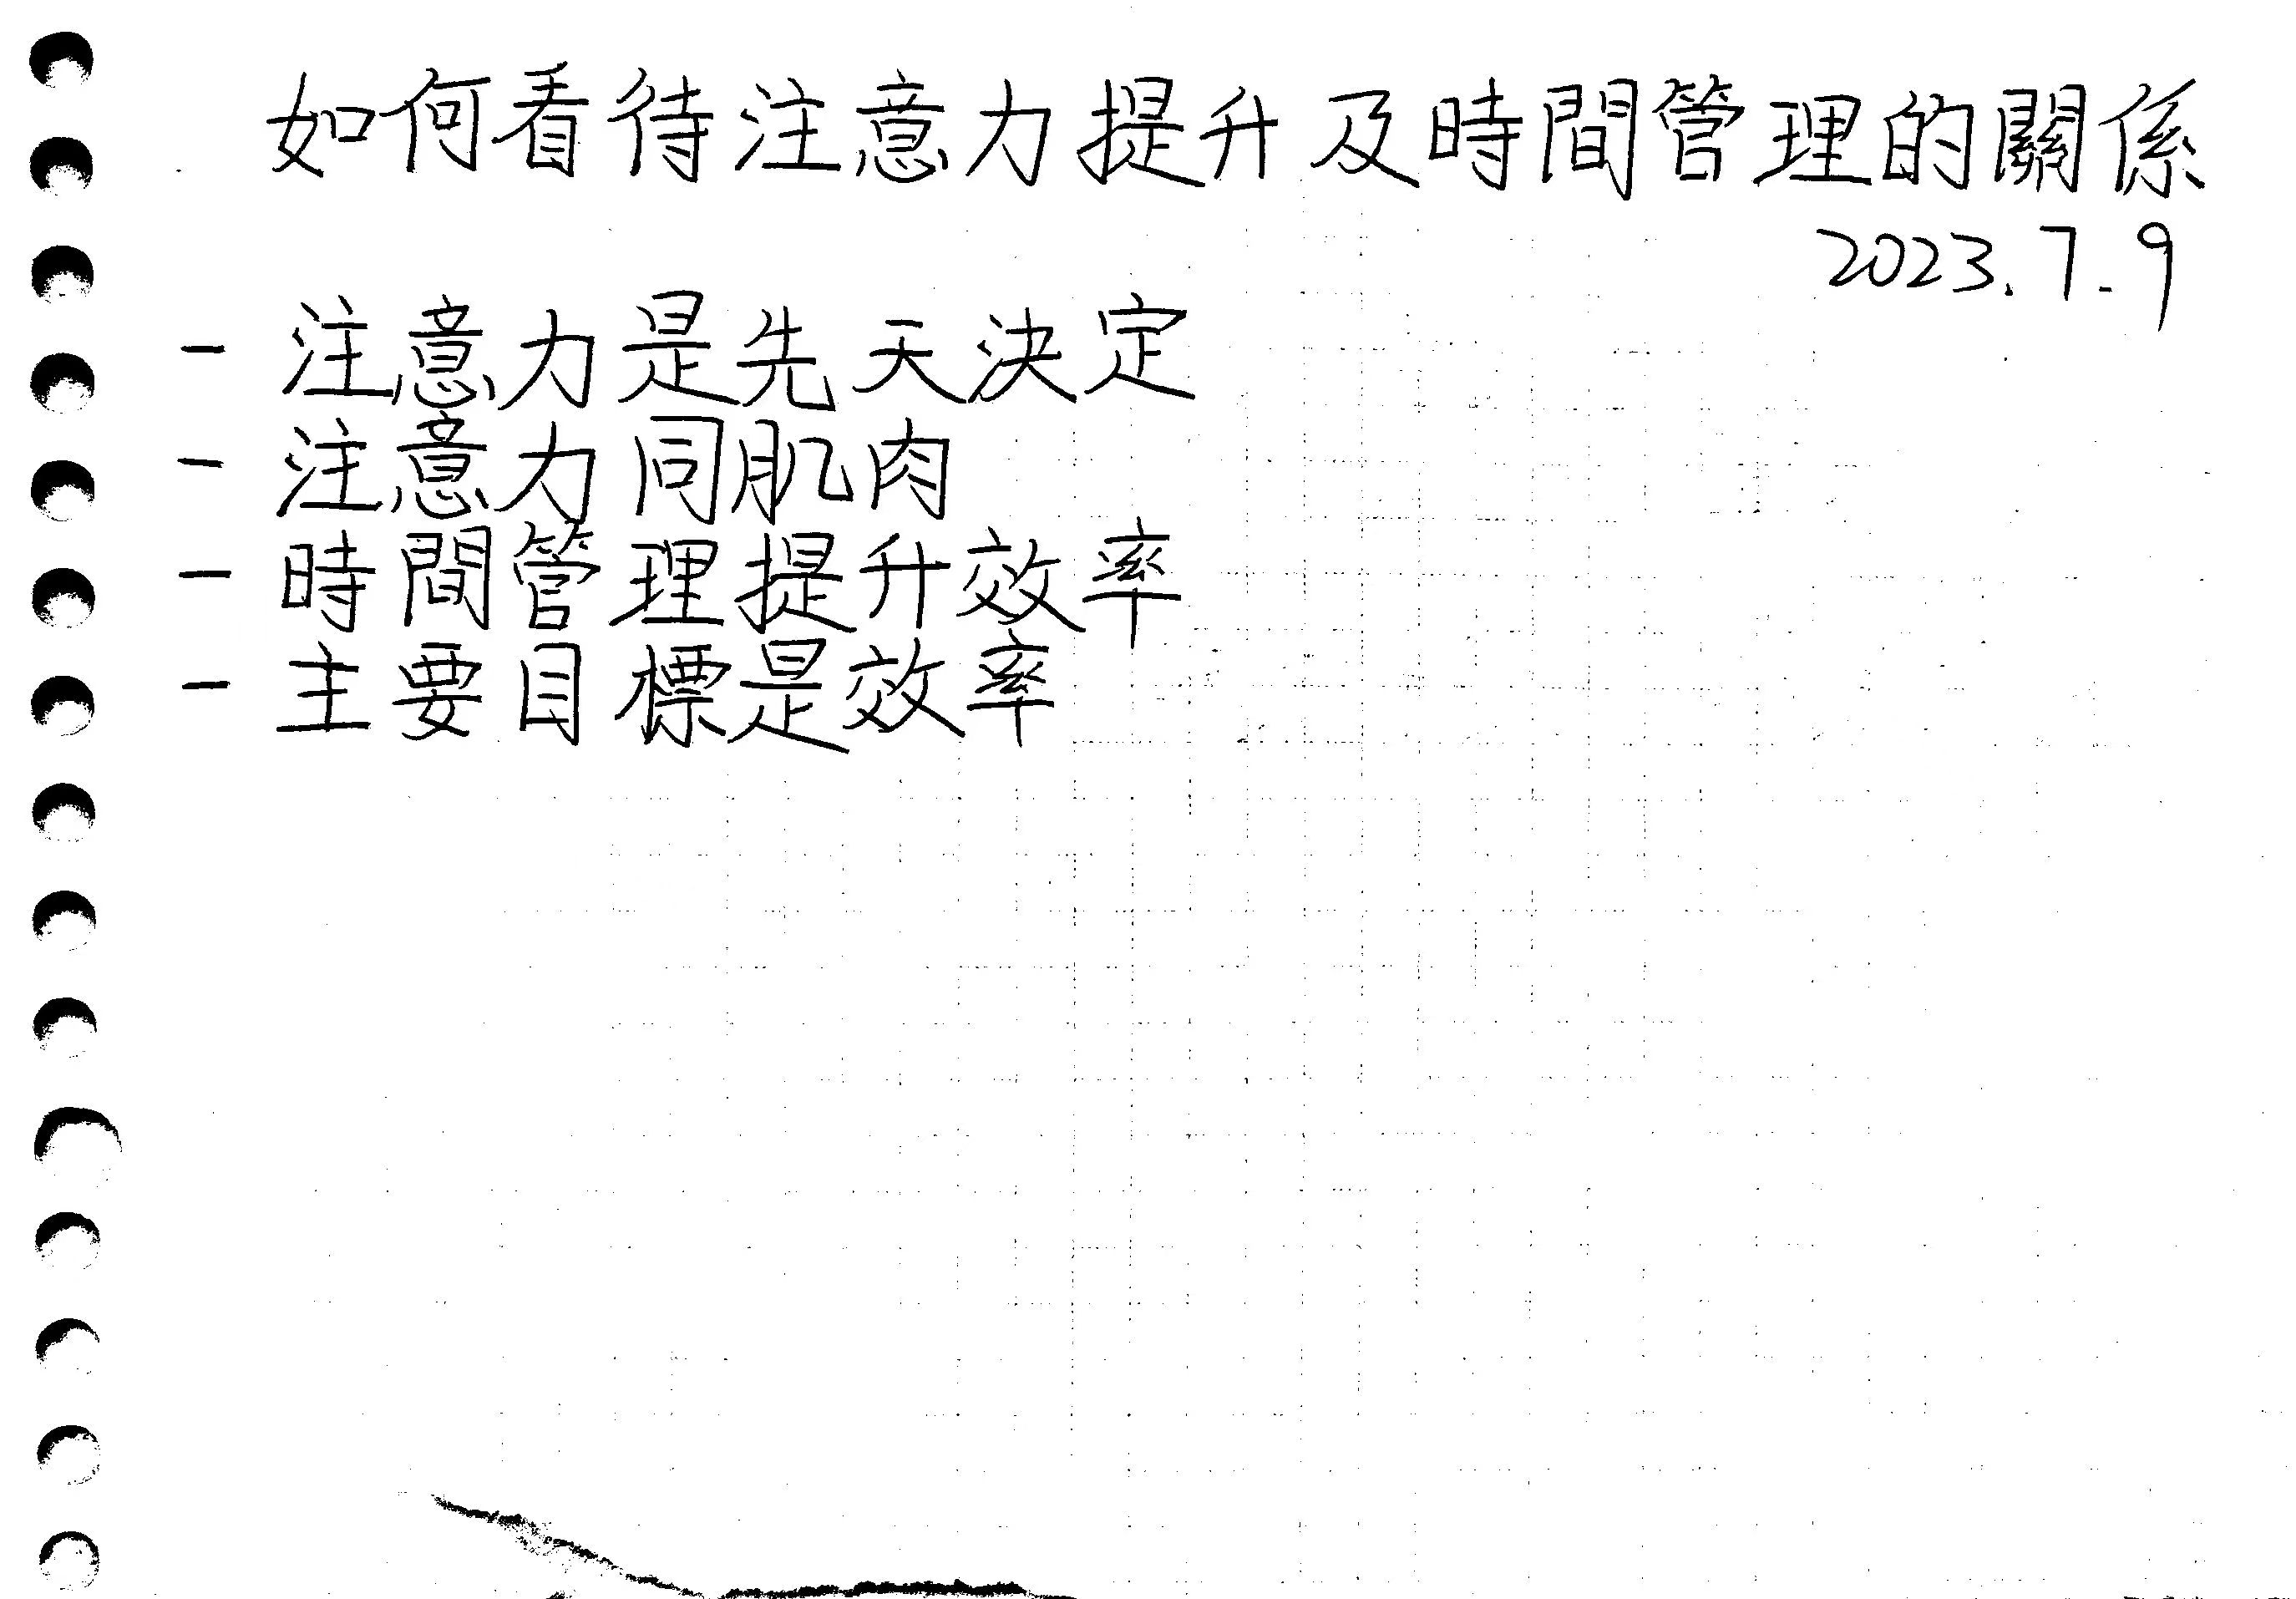 如何看待注意力提升及時間管理的關係
2023.7.9
- 注意力是先天決定
- 注意力同肌肉
- 時間管理提升效率
- 主要目標是效率